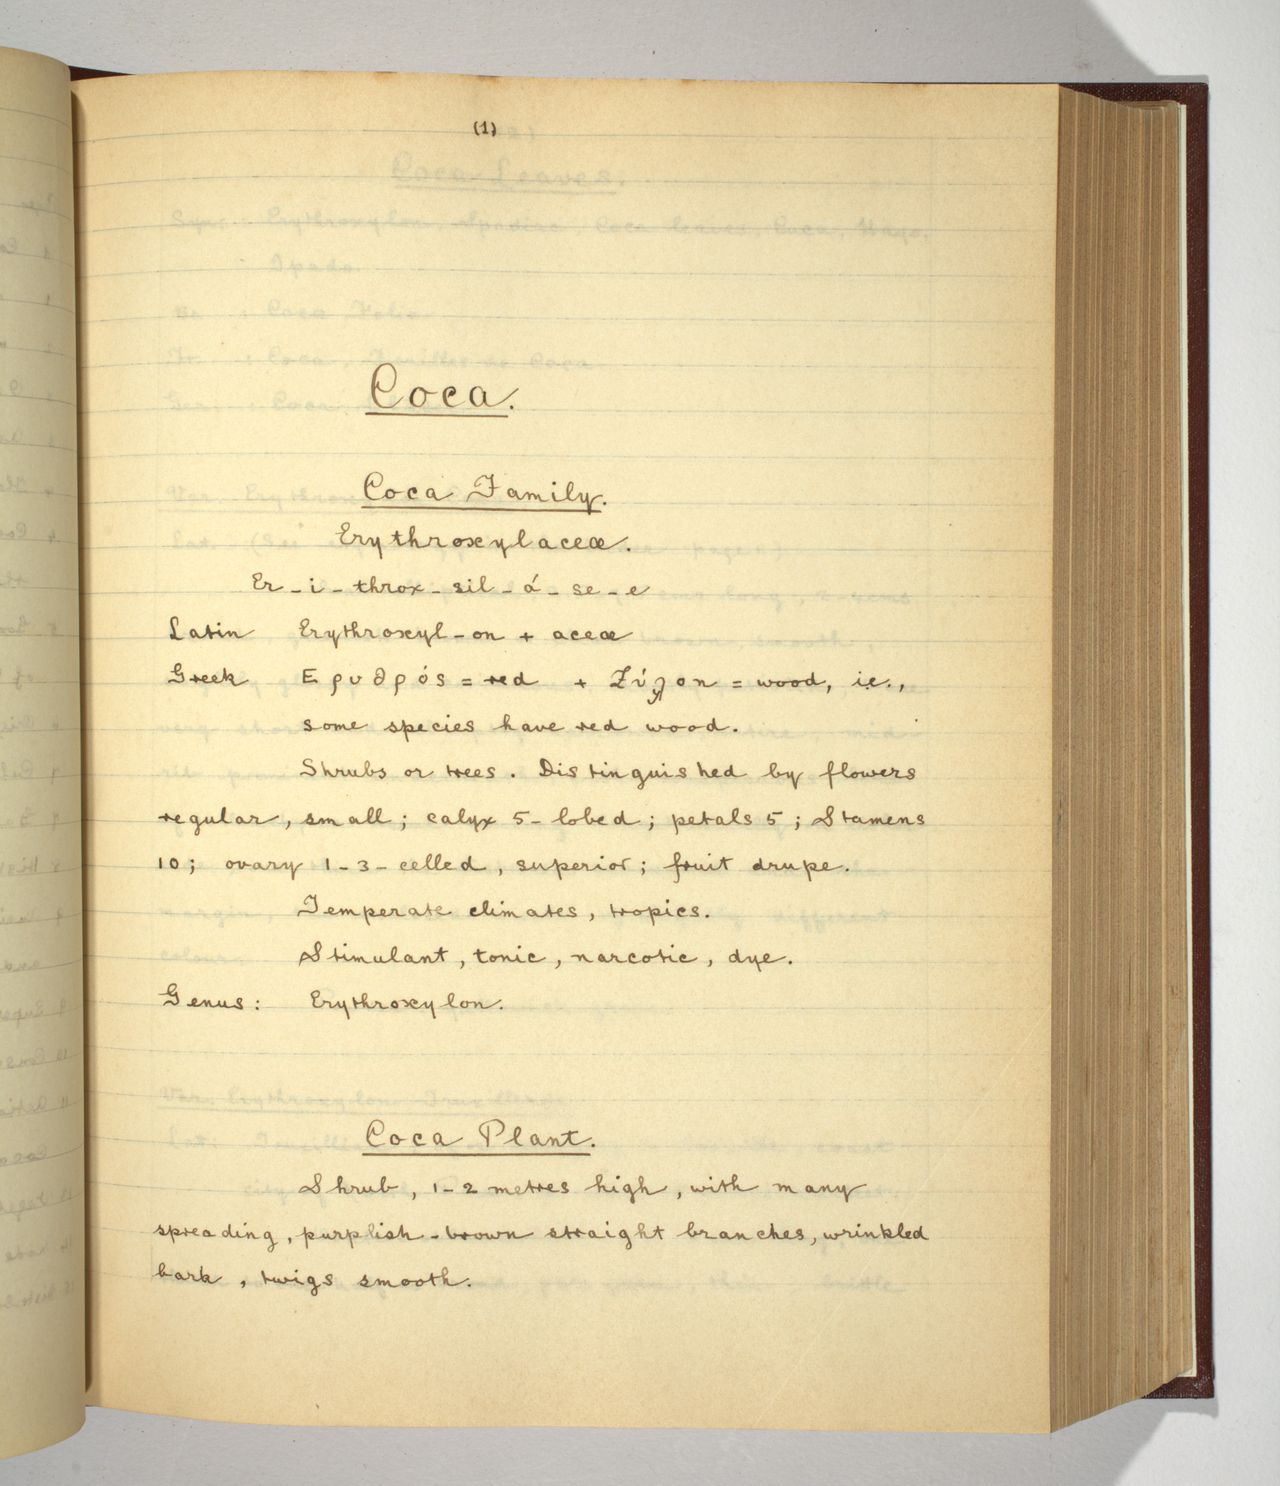 (1)
Coca.
Coca Family.
Erythroxylaceæ.
Er-i-throx-sil-á-se-e
Latin Erythroxyl-on + aceæ
Greek Ερυθρός = red + Ξύλον = wood, i.e.,
some species have red wood.
Shrubs or trees. Distinguished by flowers
regular, small; calyx 5-lobed; petals 5; Stamens
10; ovary 1-3-celled, superior; fruit drupe.
Temperate climates, tropics.
Stimulant, tonic, narcotic, dye.
Genus: Erythroxylon.
Coca Plant.
Shrub, 1-2 metres high, with many
spreading, purplish-brown straight branches, wrinkled
bark, twigs smooth.